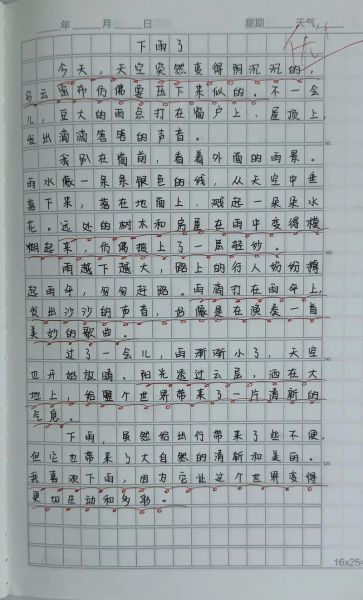 年 月 日 星期 天气
下雨了
今天，天空突然变得阴沉沉的，
乌云密布仿佛要压下来似的。不一会
儿，豆大的雨点打在窗户上、屋顶上，
发出滴滴答答的声音。
我趴在窗前，看着外面的雨景。
雨水像一条条银色的线，从天空中垂
落下来，落在地面上，溅起一朵朵水
花。远处的树木和房屋在雨中变得模
糊起来，仿佛披上了一层轻纱。
雨越下越大，路上的行人纷纷撑
起雨伞，匆匆赶路。雨滴打在雨伞上，
发出沙沙的声音，好像是在演奏一首
美妙的歌曲。
过了一会儿，雨渐渐小了，天空
也开始放晴。阳光透过云层，洒在大
地上，给整个世界带来了一片清新的
气息。
下雨，虽然给出行带来了些不便，
但它也带来了大自然的清新和美丽。
我喜欢下雨，因为它让这个世界变得
更加生动和多彩。
16x25=